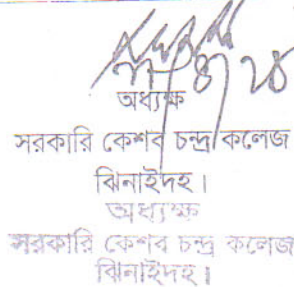 অধ্যক্ষ
সরকারি কেশব চন্দ্র কলেজ
ঝিনাইদহ।
অধ্যক্ষ
সরকারি কেশব চন্দ্র কলেজ
ঝিনাইদহ।